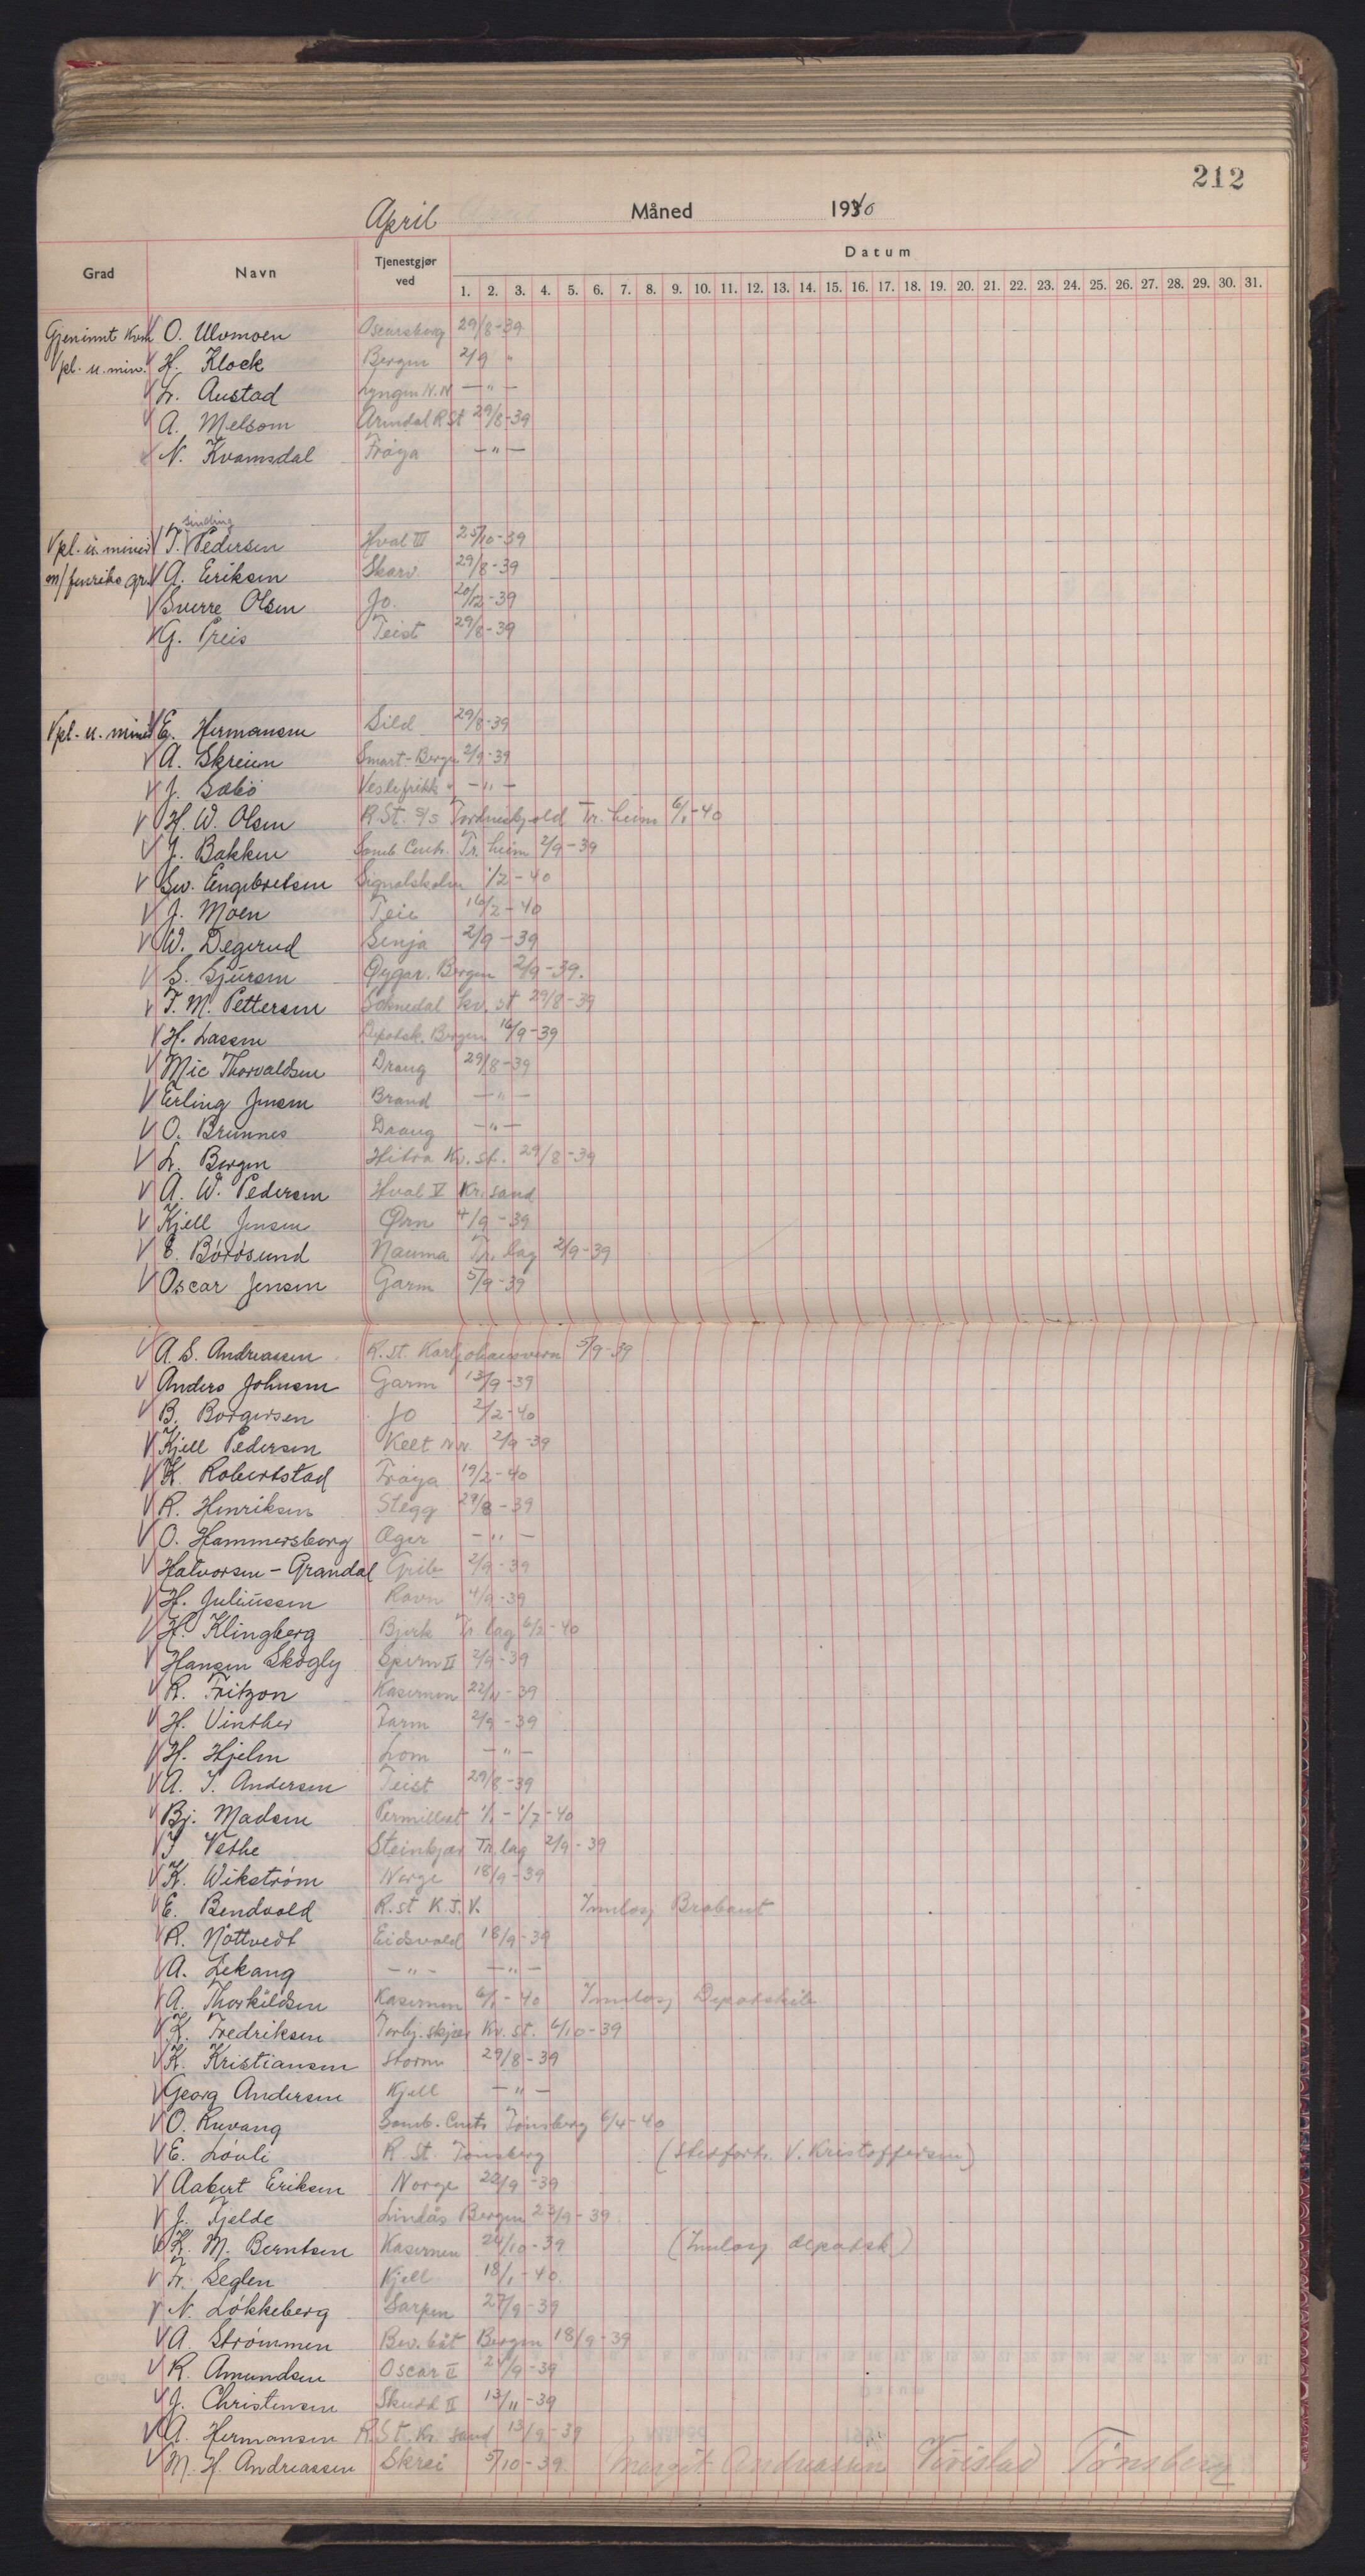 212
April Måned 1940
Datum
Grad Navn Tjenestgjør ved
1. 2. 3. 4. 5. 6. 7. 8. 9. 10. 11. 12. 13. 14. 15. 16. 17. 18. 19. 20. 21. 22. 23. 24. 25. 26. 27. 28. 29. 30. 31.
O. Ulvmoen Oscarsborg 29/8-39
Vpl. u. min. H. Klock Bergen 2/9 "
L. Austad Lyngen N.N. -"-
A. Melsom Arendal R St 29/8-39
N. Kvamsdal Frøya -"-
Sinding
Vpl. u. miner T. Pedersen Hval III 25/10-39
m/fenriks gr. A. Eriksen Skarv 29/8-39
Sverre Olsen Jo. 20/12-39
G. Preis Teist 29/8-39
Vpl. u. miner E. Hermansen Sild 29/8-39
A. Skreien Smart-Bergen 2/9-39
J. Sæbø Veslefrikk " -"-
H. W. Olsen R.St. o/s Tordenskjold Tr.heim 6/1-40
J. Bakken Samb Centr. Tr.heim 2/9-39
Sv. Engebretsen Signalskolen 1/2-40
J. Moen Teie 16/2-40
W. Degerud Senja 2/9-39
S. Sjursen Øygar. Bergen 2/9-39.
T. M. Pettersen Soknedal kv. st 29/8-39
H. Lassen Depotsk. Bergen 16/9-39
Mic Thorvaldsen Draug 29/8-39
Erling Jensen Brand -"-
O. Brunnes Draug -"-
L. Bergen Hitra Kv. st. 29/8-39
A. W. Pedersen Hval V Kr.sand
Kjell Jensen Ørn 4/9-39
E. Bórósund Nauma Tr.lag 2/9-39
Oscar Jensen Garm 5/9-39
A. S. Andreassen R. St. Karljohansvern 5/9-39
Anders Johnsen Garm 13/9-39
B. Borgersen Jo 2/2-40
Kjell Pedersen Kelt N.N. 2/9-39
K. Robertstad Frøya 19/2-40
R. Henriksen Stegg 29/8-39
O. Hammersborg Æger -"-
Halvorsen-Grandal Grib 2/9-39
H. Juliussen Ravn 4/9-39
H. Klingberg Bjerk Tr.lag 6/2-40
Hansen Skogly Sperm II 2/9-39
R. Fritzon Kasernen 22/11-39
H. Vinther Farm 2/9-39
H. Hjelm Lom -"-
A. I. Andersen Teist 29/8-39
Bj. Madsen Permittert 1/1-1/7-40
J Vethe Steinkjær Tr.lag 2/9-39
K. Wikstrøm Norge 18/9-39
E. Bendvold R.st K.J.V. Innlosj Brabant
R. Nøttvedt Eidsvold 18/9-39
A. Lekang -"- -"-
A. Thorkildsen Kasernen 6/1-40 Innlosj Depotskib
K. Fredriksen Torbj.skjær Kv. st. 6/10-39
K. Kristiansen Storm 29/8-39
Georg Andersen Kjell -"-
O. Ruvang Samb. Centr Tønsberg 6/4-40
E. Løvli R. St. Tønsberg (Stedfortr. V. Kristoffersen)
Aabert Eriksen Norge 22/9-39
J. Fjelde Lindås Bergen 23/9-39
K. M. Berntsen Kasernen 24/10-39 (Innlosj depotsk)
Fr. Seglen Kjell 18/1-40
N. Løkkeberg Sarpen 27/9-39
A. Strømmen Bev.båt Bergen 18/9-39
R. Amundsen Oscar II 21/9-39
J. Christensen Skudd II 13/11-39
A. Hermansen R.St. Kr sand 13/9-39
M. H. Andreassen Skrei 5/10-39 Margit Andreassen Kvistad Tønsberg